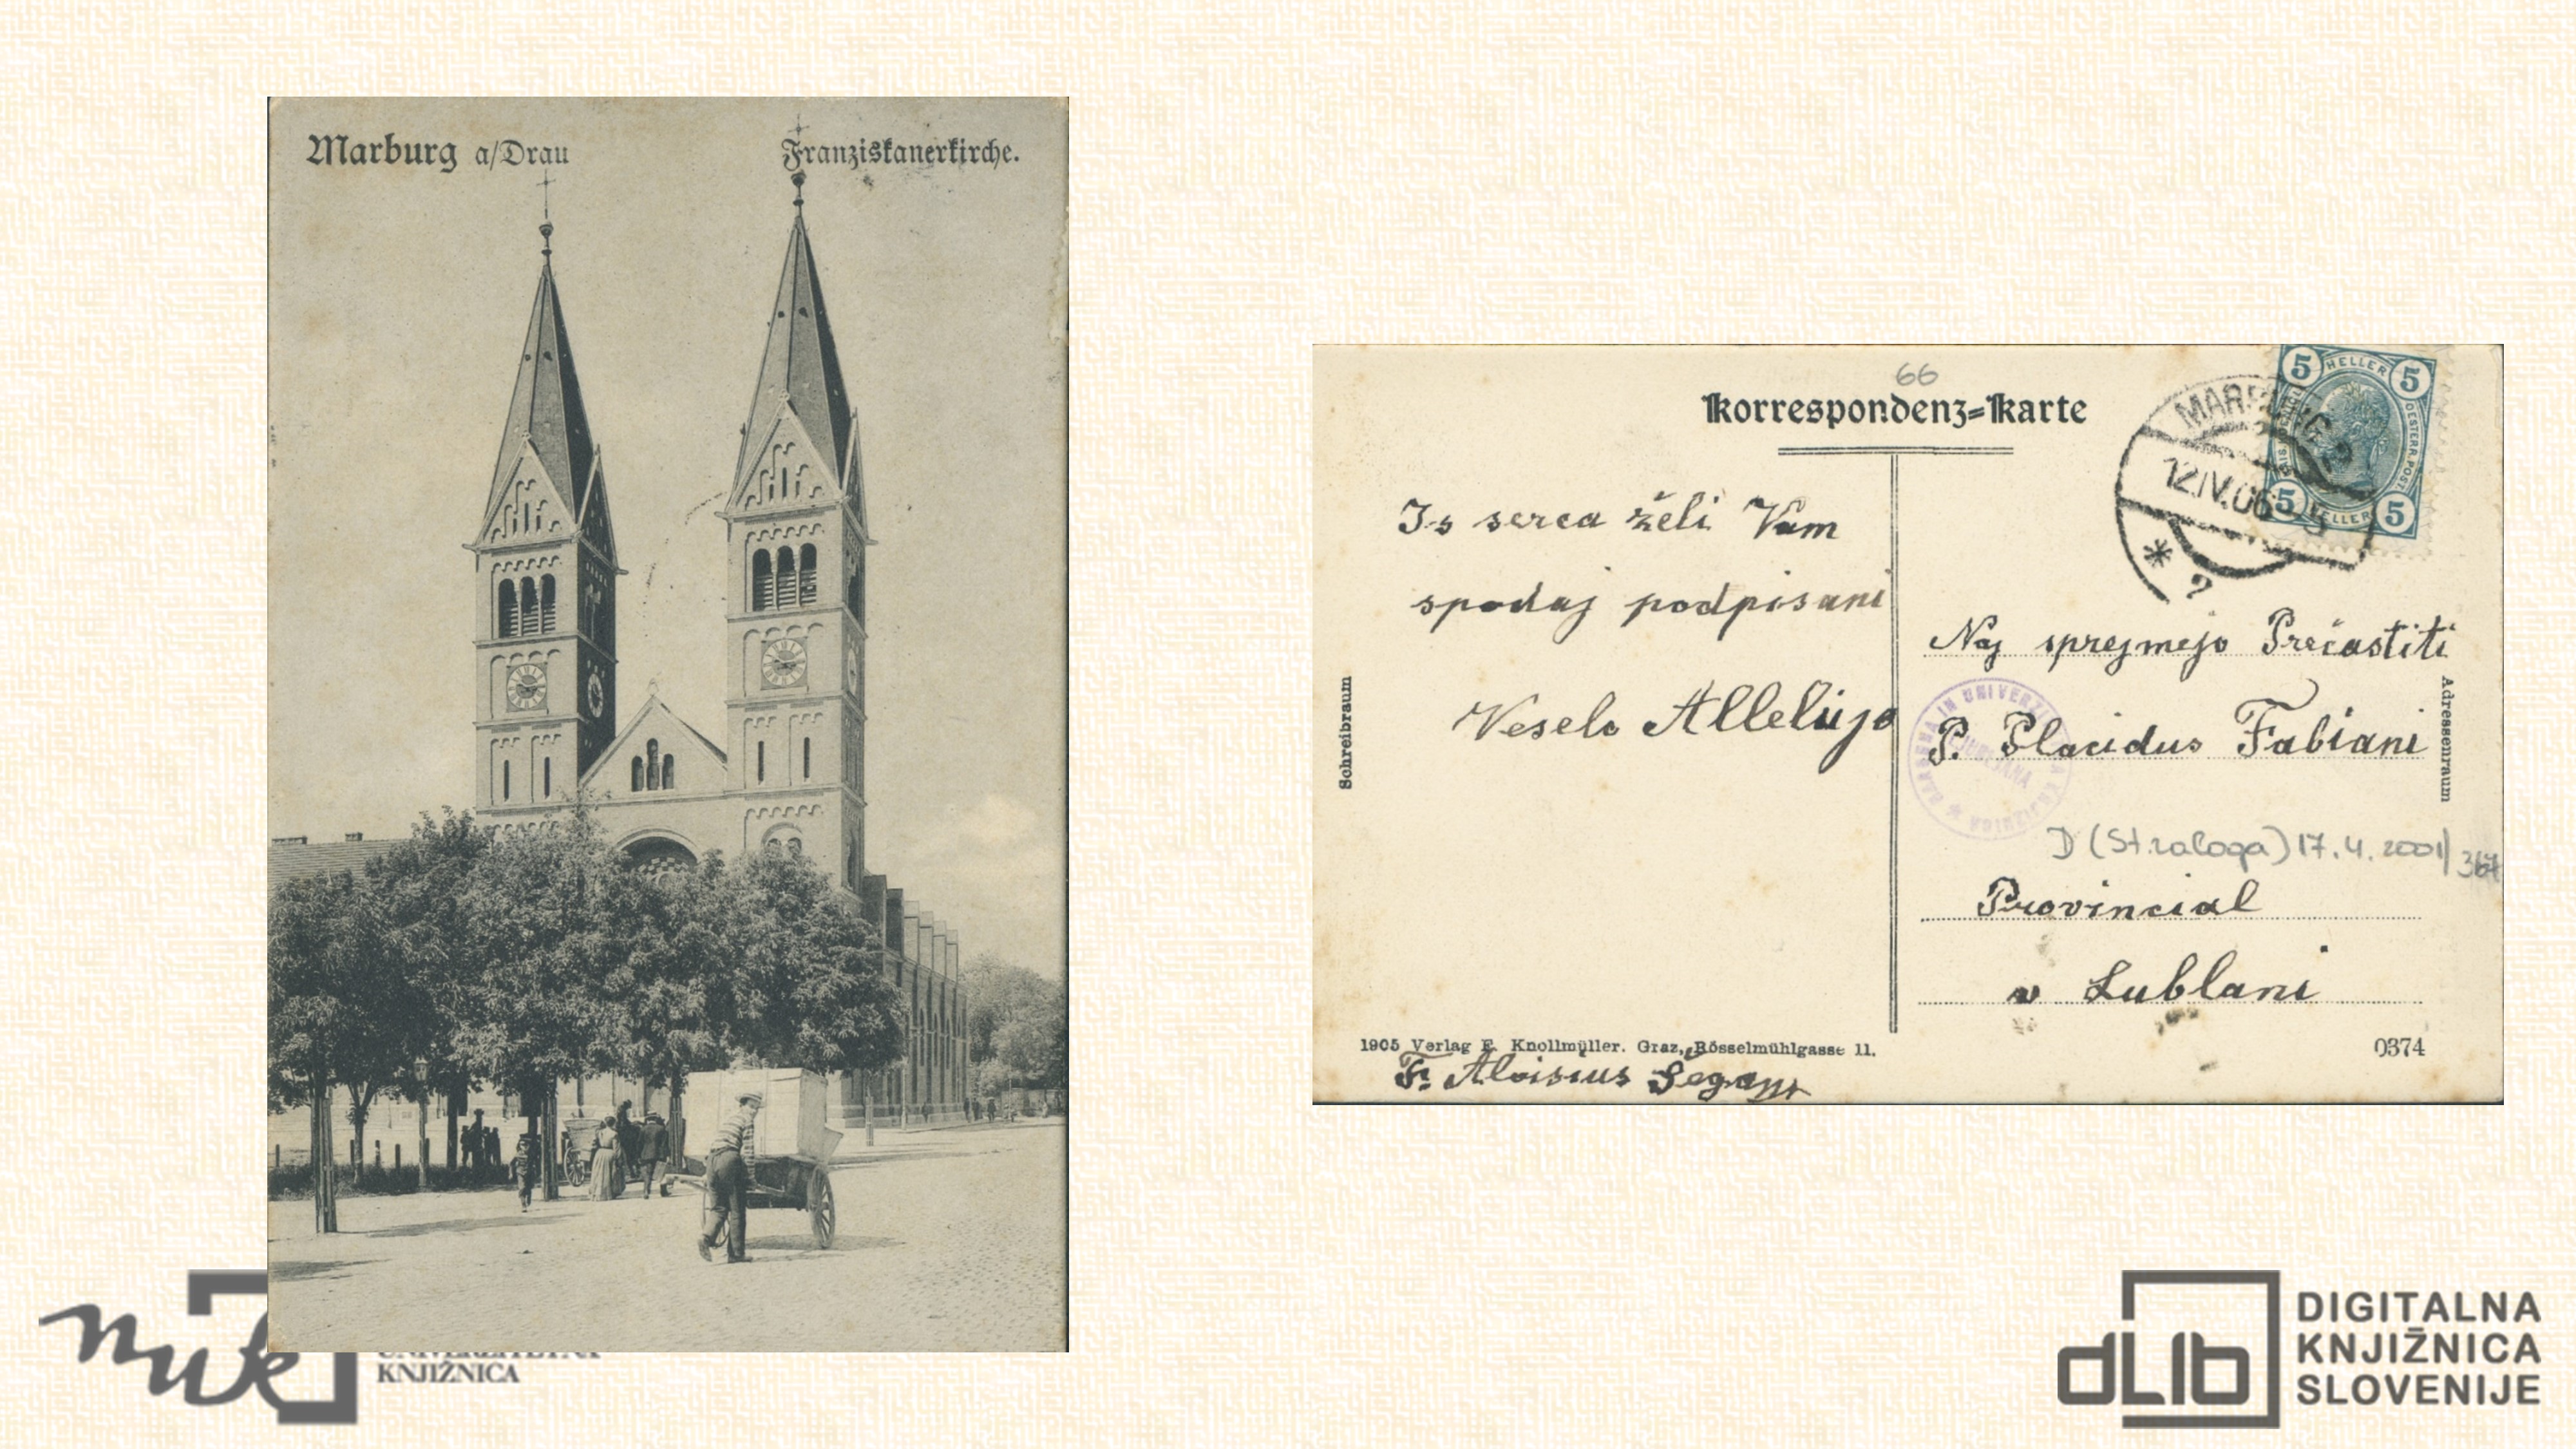 Marburg a/Drau
Franziskanerkirche.
66
Korrespondenz=Karte
5 HELLER 5
OESTERR. POST.
5 HELLER 5
MARBURG 2
12.IV.06
Schreibraum
Is serca želi Vam
spodaj podpisani
Veselo Allelujo
1905 Verlag E. Knollmüller. Graz, Rösselmühlgasse 11.
Fr. Aloisius
Naj sprejmejo Prečastiti
P. Placidus Fabiani
D (St. zaloga) 17.4.2001/367
Provincial
v Lublani
Adressenraum
0374
nuk
KNJIŽNICA
dLib
DIGITALNA
KNJIŽNICA
SLOVENIJE